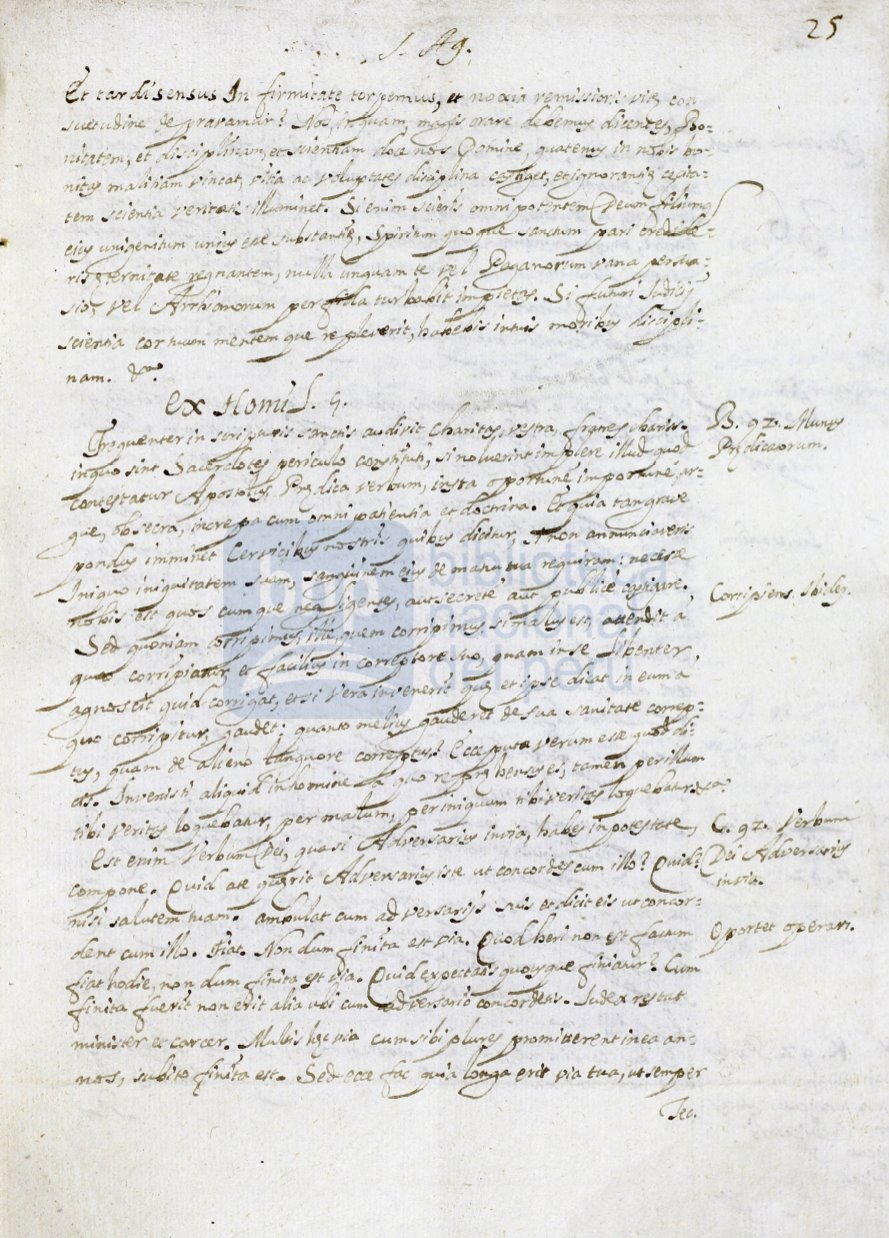 25
S. Ag.
Et tardi sensus Infirmitate torpemus, et noxia remissionis vitę con
suetudine depravamur? Nos, inquam, magis orare debemus dicentes, Bo-
nitatem, et disciplinam, et scientiam doce nos Domine, quatenus in nobis bo-
nitas malitiam vincat, vitia ac voluptates disciplina castiget, et ignorantię cęcita-
tem scientia veritatis illuminet. Si enim scieris omnipotentem Deum filiumq
eius unigenitum unius esse substantię, Spiritum quoque sanctum pari credide-
ris ęternitate regnantem, nulla unquam te vel Paganorum vana persua-
sio, vel Arrhianorum perfida turbabit impietas. Si futuri Iudicij
scientia cor tuum mentemque repleverit, habebis intuis moribus discipli-
nam. &a.
Ex Homil. 5.
Frequenter in scripturis sanctis audivit Charitas vestra, fratres chariss.
inquo sint Sacerdotes periculo constituti, si noluerint implere illud quod
contestatur Apostolus, Prędica verbum, insta oportune, importune, ar-
gue, obsecra, increpa cum omni patientia et doctrina. Et quia tan grave
pondus imminet Cervicibus nostris quibus dicitur, Si non annunciaveris
Iniquo iniquitatem suam, sanguinem eius de manu tua requiram: necesse
nobis est quos cumque negligentes, aut secrete aut publice castigare.
Sed quoniam corripimus, ille quem corripimus si malus est, attendit a
quo corripiatur, et facilius in correptore suo, quam in se libenter
agnoscit quid corrigat, et si vera invenerit quę et ipse dicat in eum a
quo corripitur, gaudet; quanto melius gauderet de sua sanitate correp-
tus, quam de alieno languore correptus? Ecce puta verum esse quod di-
cis. Invenisti aliquid in homine a quo repręhenses es, tamen per illum
tibi veritas loquebatur, per malum, per iniquum tibi veritas loquebatur. &a.
Est enim Verbum Dei, quasi Adversarius in via, habes in potestate,
compone. Quid a te quęrit Adversarius iste ut concordes cum illo? Quid?
nisi salutem tuam. ambulat cum adversarijs suis et dicit eis ut concor-
dent cum illo. Fiat. Non dum finita est via. Quod heri non est factum
fiat hodie, non dum finita est via. Quid expectatis quousque finiatur? Cum
finita fuerit non erit alia ubi cum adversario concordetis. Iudex restat
minister et carcer. Multis hęc via cum sibi plures promitterent in ea an-
nos, subito finita est. Sed ecce fac quia longa erit via tua, ut semper
B. 92. Munus
Prędicatorum.
Corripiens
C. 92. Verbum
Dei Adversarius
in via.
Oportet operari.
biblioteca
nacional
del perú